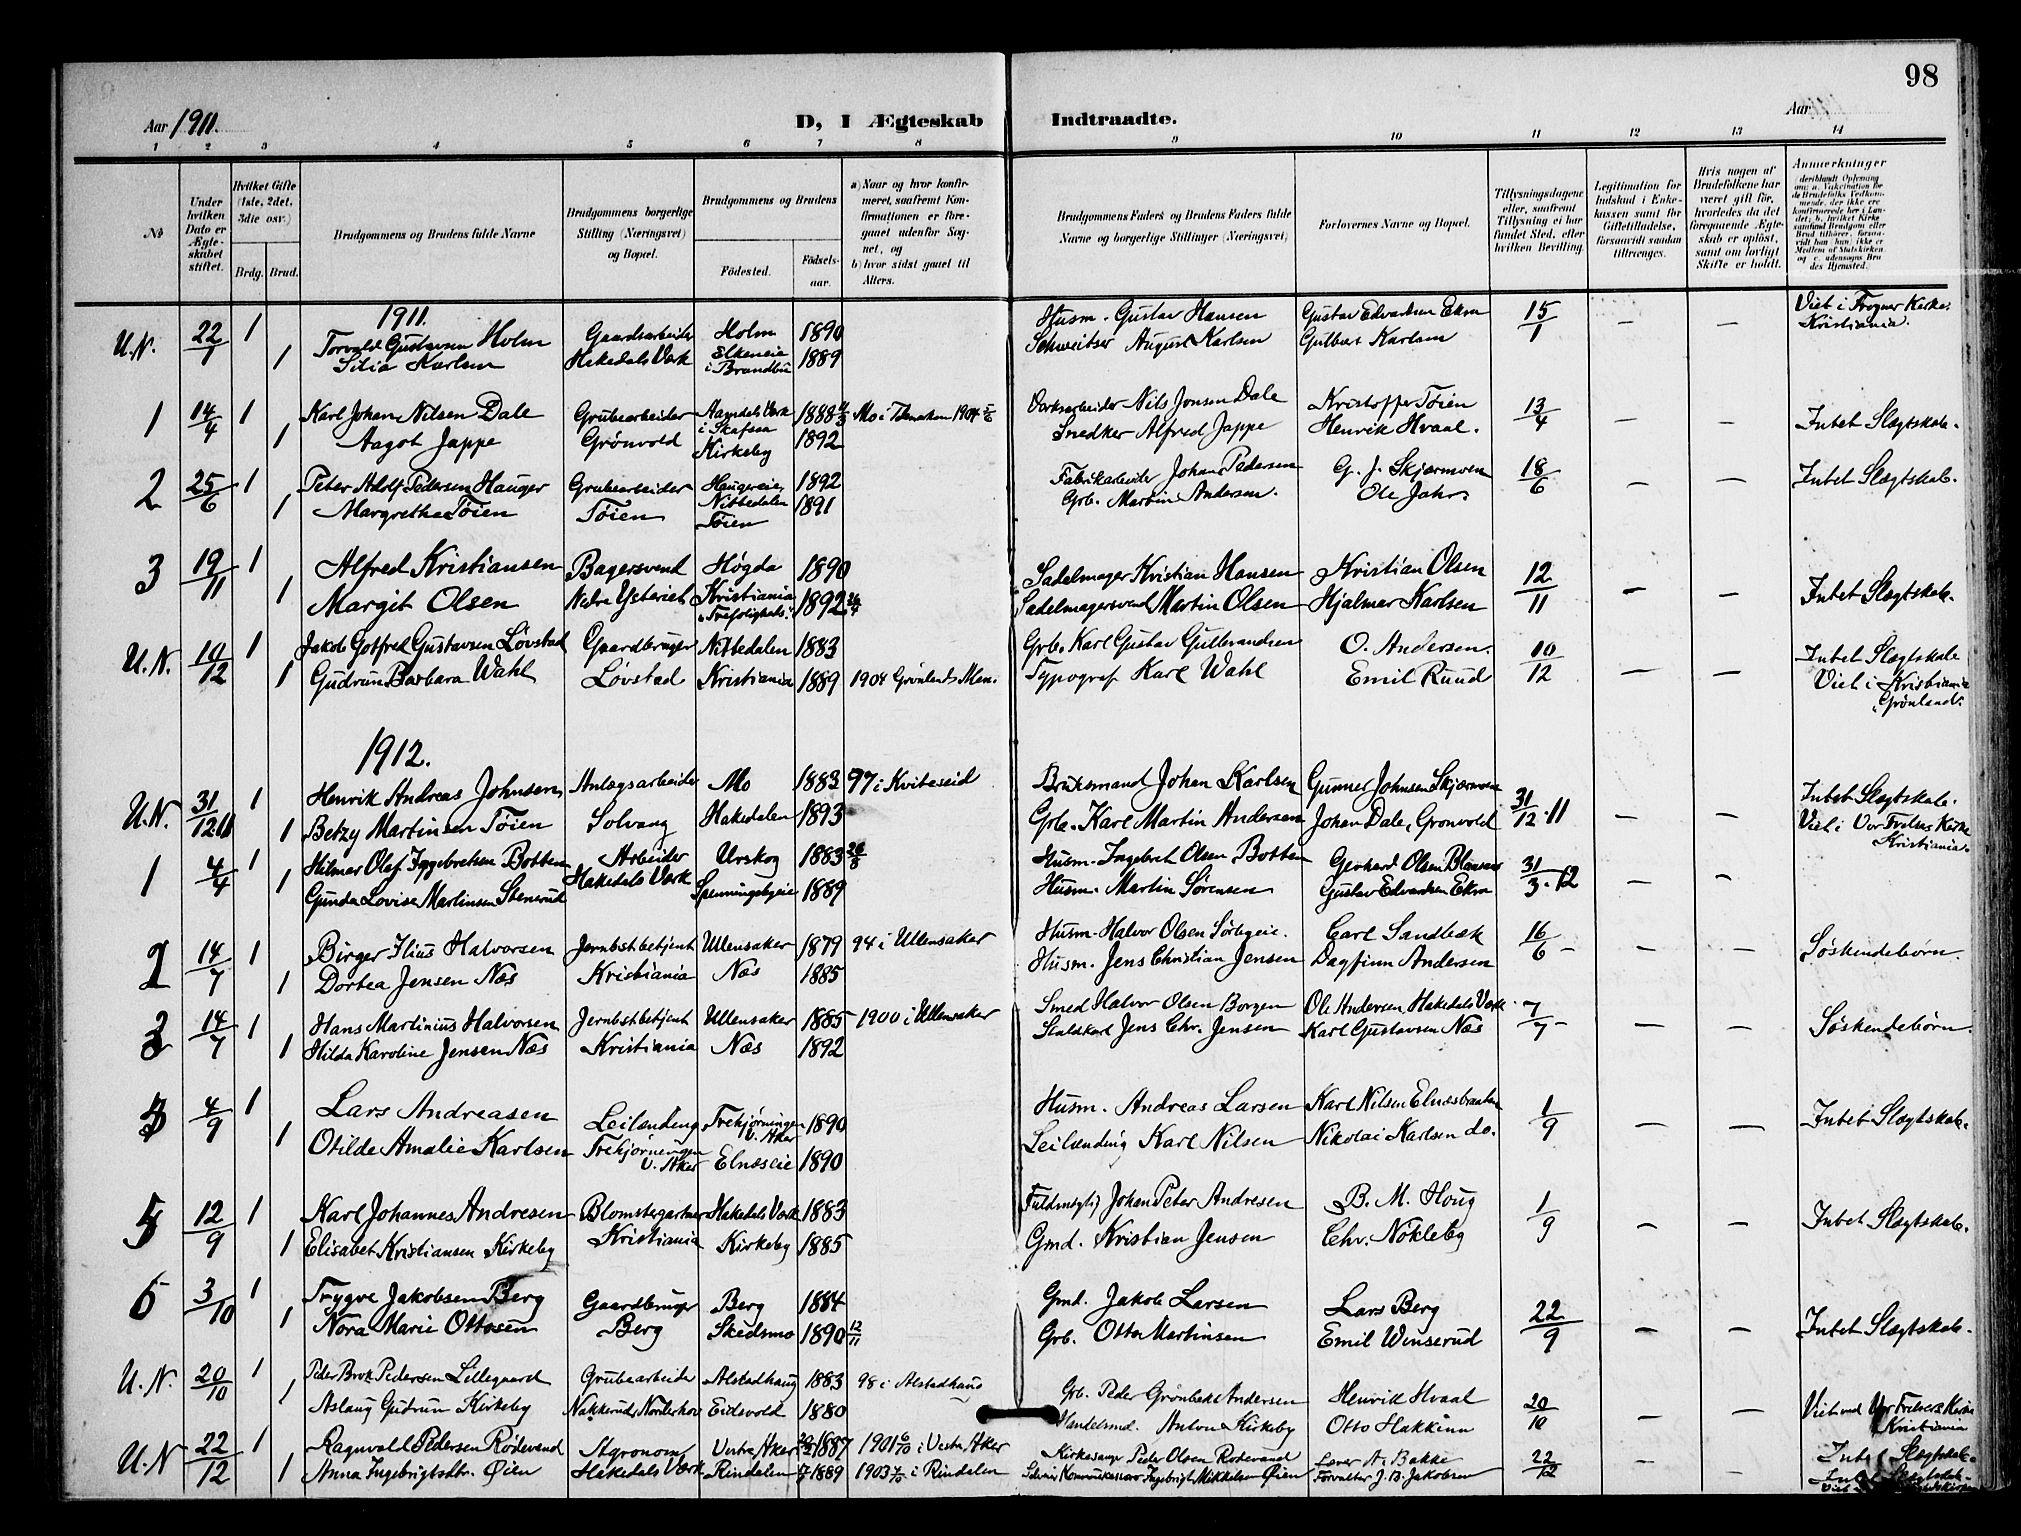 98
Aar 1911. D, I Ægteskab Indtraadte. Aar
1 2 3 4 5 6 7 8 9 10 11 12 13 14
No
Under hvilken Dato er Ægteskabet stiftet.
Hvilket Gifte (1ste, 2det, 3die osv.)
Brdg. Brud.
Brudgommens og Brudens fulde Navne
Brudgommens borgerlige Stilling (Næringsvei) og Bopæl.
Brudgommens og Brudens
Fødested. Fødselsaar.
a) Naar og hvor konfirmeret, saafremt Konfirmationen er foregaaet udenfor Sognet, og
b) hvor sidst gaaet til Alters.
Brudgommens Faders og Brudens Faders fulde Navne og borgerlige Stillinger (Næringsvei)
Forlovernes Navne og Bopæl.
Tillysningsdagene eller, saafremt Tillysning ei har fundet Sted, efter hvilken Bevilling.
Legitimation for Indskud i Enkekassen samt for Giftetilladelse, forsaavidt saadan tiltrænges.
Hvis nogen af Brudefolkene har været gift før, hvorledes da det foregaaende Ægteskab er opløst, samt om lovligt Skifte er holdt.
Anmerkninger
1911.
U.N. 22/1 1 Torvald Gustavsen Holm Gaardsarbeider Holm 1890 Husm. Gustav Hansen Gustav Edvardsen Ekra 15/1 — — Viet i Frogner Kirke,
1 Silia Karlsen Hakedals Værk Elkeneie i Brandbu 1889 Schweitser August Karlsen Gulbras Karlsen Kristiania.
1 14/4 1 Karl Johan Nilsen Dale Grubearbeider Aamdals Værk i Skafsaa 1888 Mo i Telemarken 1904 Værksarbeider Nils Jonsen Dale Kristoffer Tøien 13/4 — — Intet Slægtskab.
1 Aagot Jappe Grønvold Kirkeby 1892 Snedker Alfred Jappe Henrik Hvaal.
2 25/6 1 Peter Adolf Pedersen Hauger Grubearbeider Haugereie, Nittedalen 1892 Fabrikarbeider Johan Pedersen G. J. Skjærmoen 18/6 — — Intet Slægtskab.
1 Margrethe Tøien Tøien Tøien 1891 Grb. Martin Andersen. Ole Jahr
3 19/11 1 Alfred Kristiansen Bagersvend Høgda 1890 Sadelmager Kristian Hansen Kristian Olsen 12/11 — — Intet Slægtskab.
1 Margit Olsen Nedre Ysteriet Kristiania "Trefoligheds" 1892 26/4 Sadelmagersvend Martin Olsen Hjalmar Karlsen
U.N. 10/12 1 Jakob Gotfred Gustavsen Løvstad Gaardbruger Nittedalen 1883 Grb. Karl Gustav Gulbrandsen O. Andersen. 10/12 — — Intet Slægtskab
1 Gudrun Barbara Wahl Løvstad Kristiania 1889 1904 Grønlands Men. Typograf Karl Wahl Emil Ruud Viet i Kristiania "Grønland"
1912.
U.N. 31/12.11 1 Henrik Andreas Johnsen Anlægsarbeider Mo 1883 97 i Kviteseid Bruksmand Johan Karlsen Gunner Johnsen Skjærmoen 31/12.11 — — Intet Slægtskab.
1 Betzy Martinsen Tøien Solvang Hakedalen 1893 Grb. Karl Martin Andersen Johan Dale, Grønvold Viet i Vor Frelsers Kirke Kristiania.
1 4/4 1 Hilmar Olaf Ingebretsen Botten Arbeider Urskog 1883 26/8 Husm. Ingebret Olsen Botten Gerhard Olsen 31/3.12 — —
1 Gunda Lovise Martinsen Stenerud Hakedals Værk Spenningsbyeie 1889 Husm. Martin Sørensen Gustav Edvardsen Ekra
2 14/7 1 Birger Ilius Halvorsen Jernbstbetjent Ullensaker 1879 94 i Ullensaker Husm. Halvor Olsen Sørbyeie. Carl Sandbæk 16/6 — — — Søskendebørn.
1 Dortea Jensen Næs Kristiania Næs 1885 Husm. Jens Christian Jensen Dagfinn Andersen
3 14/7 1 Hans Martinius Halvorsen Jernbstbetjent Ullensaker 1885 1900 i Ullensaker Smed Halvor Olsen Borgen Ole Andersen, Hakedals Værk 7/7 — — — Søskendebørn.
1 Hilda Karoline Jensen Næs Kristiania Næs 1892 Staldskarl Jens Chr. Jensen Karl Gustavsen Næs
4/9 1 Lars Andreasen Leilænding Trekjørningen V. Aker 1890 Husm. Andreas Larsen Karl Nilsen Elnæsbraaten 1/9 — — Intet Slægtskab.
1 Otilde Amalie Karlsen Trekjørningen V. Aker Elnæseie 1890 Leilænding Karl Nilsen Nikolai Karlsen do.
5 12/9 1 Karl Johannes Andresen Blomstergartner Hakedals Værk 1883 Fuldmægtig Johan Peter Andresen B. M. Houg 1/9 — — Intet Slægtskab.
1 Elisabet Kristiansen Kirkeby Kristiania Kirkeby 1885 Gmd. Kristian Jensen Chr. Nökleby
6 3/10 1 Trygve Jakobsen Berg Gaardbruger Berg 1884 Gmd. Jakob Larsen Lars Berg 22/9 — — Intet Slægtskab.
1 Nora Marie Ottosen Berg Skedsmo 1890 12/11 Grb. Otto Martinsen Emil Winserud
U.N. 20/10 1 Peder Pedersen Lillegaard Grubearbeider Alstadhaug 1883 98 i Alstadhaug Grb. Peder Grønbek Andersen Henrik Hvaal 20/10 — — Viet ved Vor Frelsers Kirke Kristiania
1 Aslaug Gudrun Kirkeby Nakkerud, Norderhov Eidsvold 1880 Handelsmd. Anton Kirkeby Otto Hakkinn
U.N 22/12 1 Ragnvald Pedersen Rödevand Agronom Vestre Aker 1887 1901 i Vestre Aker Kirkesanger Peder Olsen Rødevand A. Bakke 22/12 — — Intet Slægtskab.
1 Anna Ingebrigtsdtr. Øien Hakedals Værk Rindalen 1889 1903 i Rindalen Ingebrigt Mikkelsen Øien Forvalter J. B. Jakobsen Intet Slægtskab.